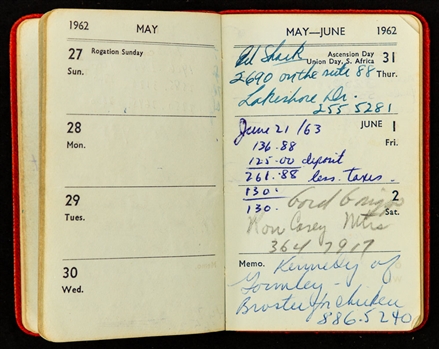 1962 MAY
27 Rogation Sunday
Sun.
28
Mon.
29
Tues.
30
Wed.
MAY—JUNE 1962
Ascension Day
Union Day, S. Africa 31
Thur.
Shark
2690 on the site 88
Lakeshore Dr.
255 5281
June 21/63 JUNE 1
Fri.
136.88
125.00 deposit
261.88 less taxes.
130. 2
Sat.
130. Gord
Ron Carey Mtrs
364 7917
Memo. Kennedy of
Gormley
chicken
886.5240